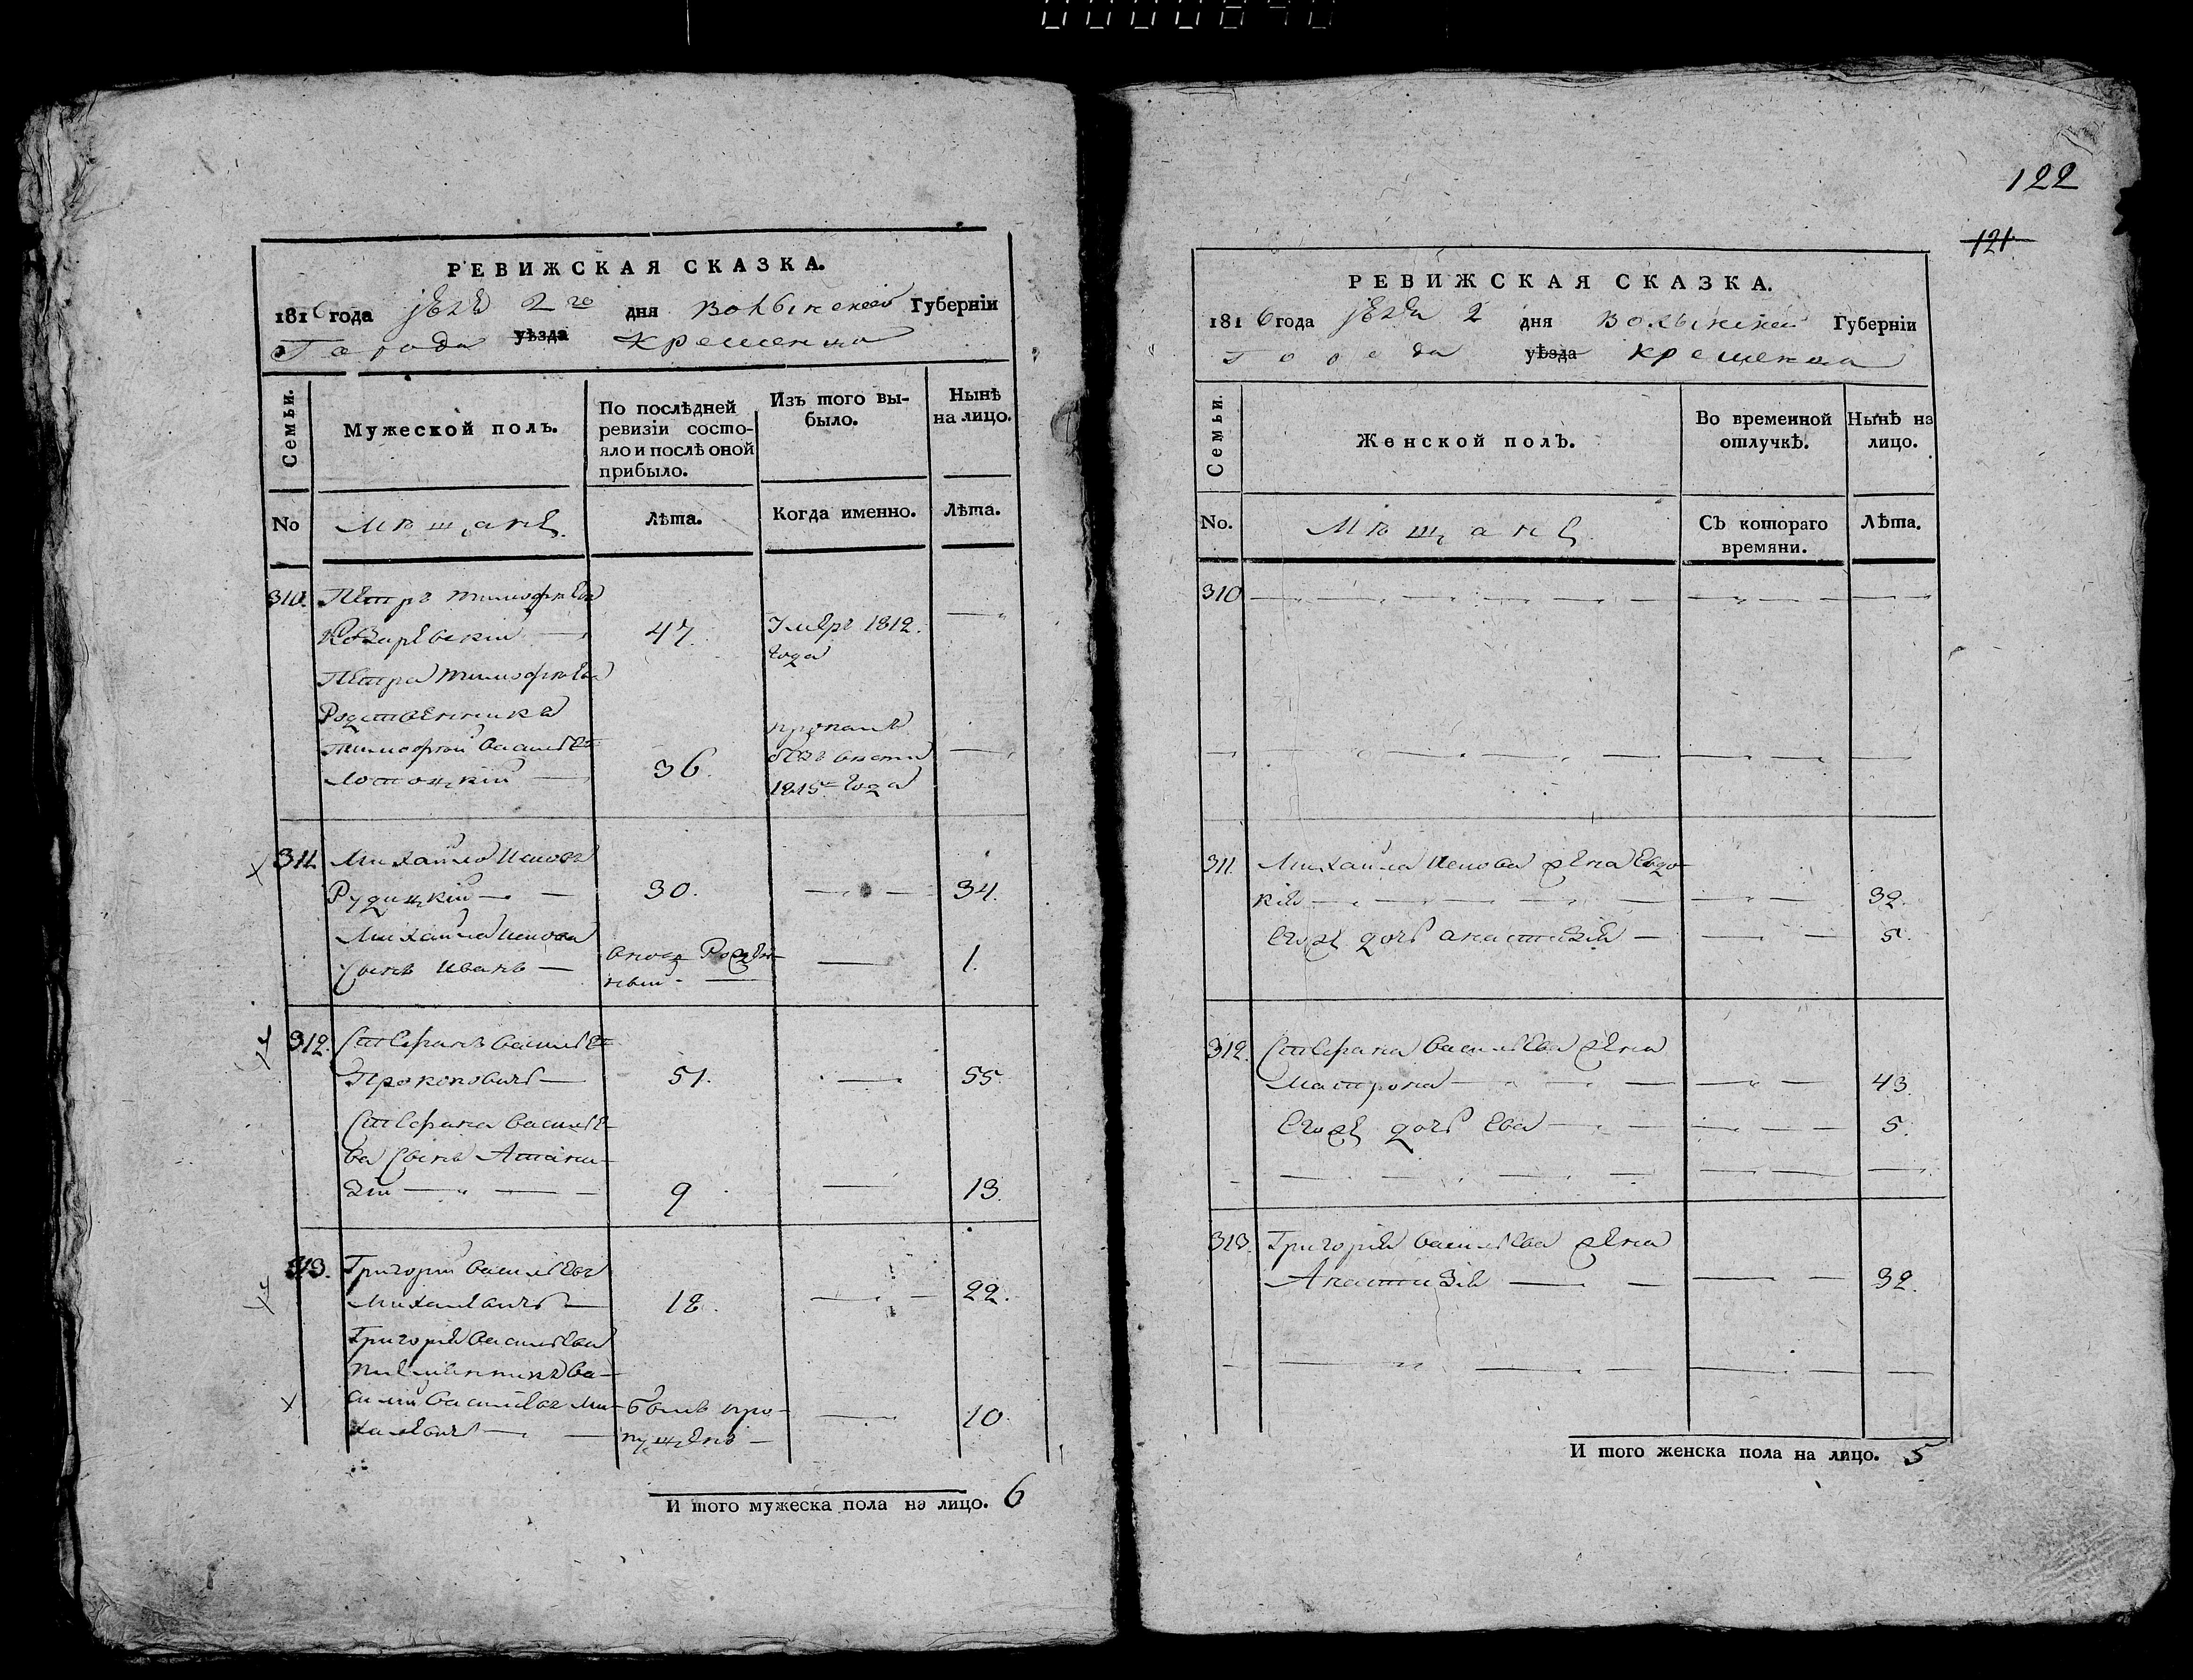 122
121
РЕВИЖСКАЯ СКАЗКА.
1816 года июля 2го дня Волынской Губерніи
Города уѣзда Кременца
Семьи.
Мужеской полъ.
По послѣдней ревизіи состо-
яло и послѣ оной
прибыло.
Изъ того вы-
было.
Нынѣ
на лицо.
No
Мѣщане
Лѣта.
Когда именно.
Лѣта.
310. Петръ Тимофѣевъ
47. Умеръ 1812. —
года
Петра Тимофѣева
Родственникъ
Тимофей Василев пропалъ
36. безъ вести —
1815 года
311 Михайло
Рудицкій — 30. — 34.
Михайла
Сынъ Иванъ — вновь Рожден-
ный — — 1.
312. Стефанъ Василев
Прокоповичъ — 51. — 55.
Стефана Василье-
ва Сынъ Атана-
зій — 9 — 13.
313. Григорій Васильевъ
Михалевичъ — 18. — 22.
Григорія Васильева
племенникъ Ва-
силій Васильевъ Ми- былъ про-
халевичъ — пущенъ — — 10.
И того мужеска пола на лицо. 6
РЕВИЖСКАЯ СКАЗКА.
1816 года июля 2 дня Волынской Губерніи
Города уѣзда Кременца
Семьи.
Женской полъ.
Во временной
отлучкѣ.
Нынѣ на
лицо.
No.
Мѣщане
Съ котораго
времяни.
Лѣта.
310 — — —
311. Михайла жена Евдо-
кія — — 32.
Егоже дочь Анастазія — — 5.
312. Стефана Васильева жена
Матрона — — 43.
Егоже дочь Ева — — 5.
313. Григорія Васильева жена
Анастазія — — 32.
И того женска пола на лицо. 5